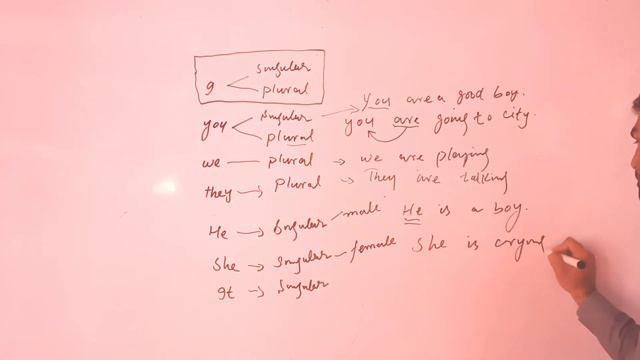 I singular
plural
you singular → You are a good boy.
plural you are going to city.
we — plural → we are playing
they → Plural → They are talking
He → Singular male He is a boy.
She → Singular - female She is crying
It → Singular